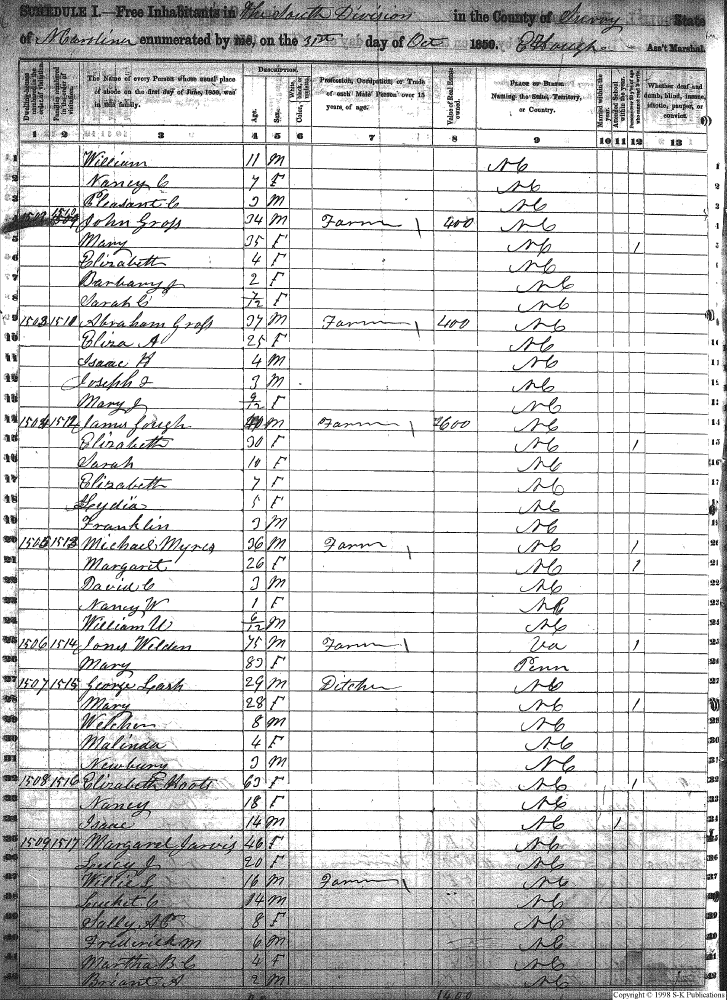 SCHEDULE I.—Free Inhabitants in The South Division in the County of Surry State
of N Carolina enumerated by me, on the 31st day of Oct 1850. Ass't Marshal.
Dwelling-houses numbered in the order of visitation.
Families numbered in the order of visitation.
The Name of every Person whose usual place of abode on the first day of June, 1850, was in this family.
Description.
Age.
Sex.
White, black, or mulatto.
Color,
Profession, Occupation, or Trade of each Male Person over 15 years of age.
Value of Real Estate owned.
Place of Birth. Naming the State, Territory, or Country.
Married within the year.
Attended School within the year.
Whether deaf and dumb, blind, insane, idiotic, pauper, or convict
1 2 3 4 5 6 7 8 9 10 11 12 13
1 William 11 M NC
2 Nancy C 7 F NC
3 Pleasant C 3 M NC
4 John Gross 34 M Farmer 400 NC
5 Mary 35 F NC /
6 Elizabeth 4 F NC
7 Barbary J 2 F NC
8 Sarah C 7/12 F NC
9 1503 1511 Abraham Gross 37 M Farmer 400 NC
10 Eliza A 25 F NC
11 Isaac H 4 M NC
12 Joseph I 3 M NC
13 Mary J 9/12 F NC
14 1504 1512 James Gough M Farmer 600 NC
15 Elizabeth 30 F NC /
16 Sarah 10 F NC
17 Elizabeth 7 F NC
18 Lydia 5 F NC
19 Franklin 3 M NC
20 1505 1513 Michael Myres 36 M Farmer NC /
21 Margaret 26 F NC /
22 David C 3 M NC
23 Nancy W 1 F NC
24 William W 6/12 M NC
25 1506 1514 Jones Welden 75 M Farmer Va /
26 Mary 83 F Penn
27 1507 1515 George Lash 29 M Ditcher NC
28 Mary 28 F NC /
29 Welcher 8 M NC
30 Malinda 4 F NC
31 Newbury 3 M NC
32 1508 1516 Elizabeth Hoots 63 F NC /
33 Nancy 18 F NC
34 Isaac 14 M NC /
35 1509 1517 Margaret Jarvis 46 F NC
36 Lucy J 20 F NC
37 Willie L 16 M Farmer NC
38 C 14 M NC
39 Sally 8 F NC
40 Frederick M 6 M NC
41 Martha B C 4 F NC
42 Briant A 2 M NC
Copyright © 1998 S-K Publications